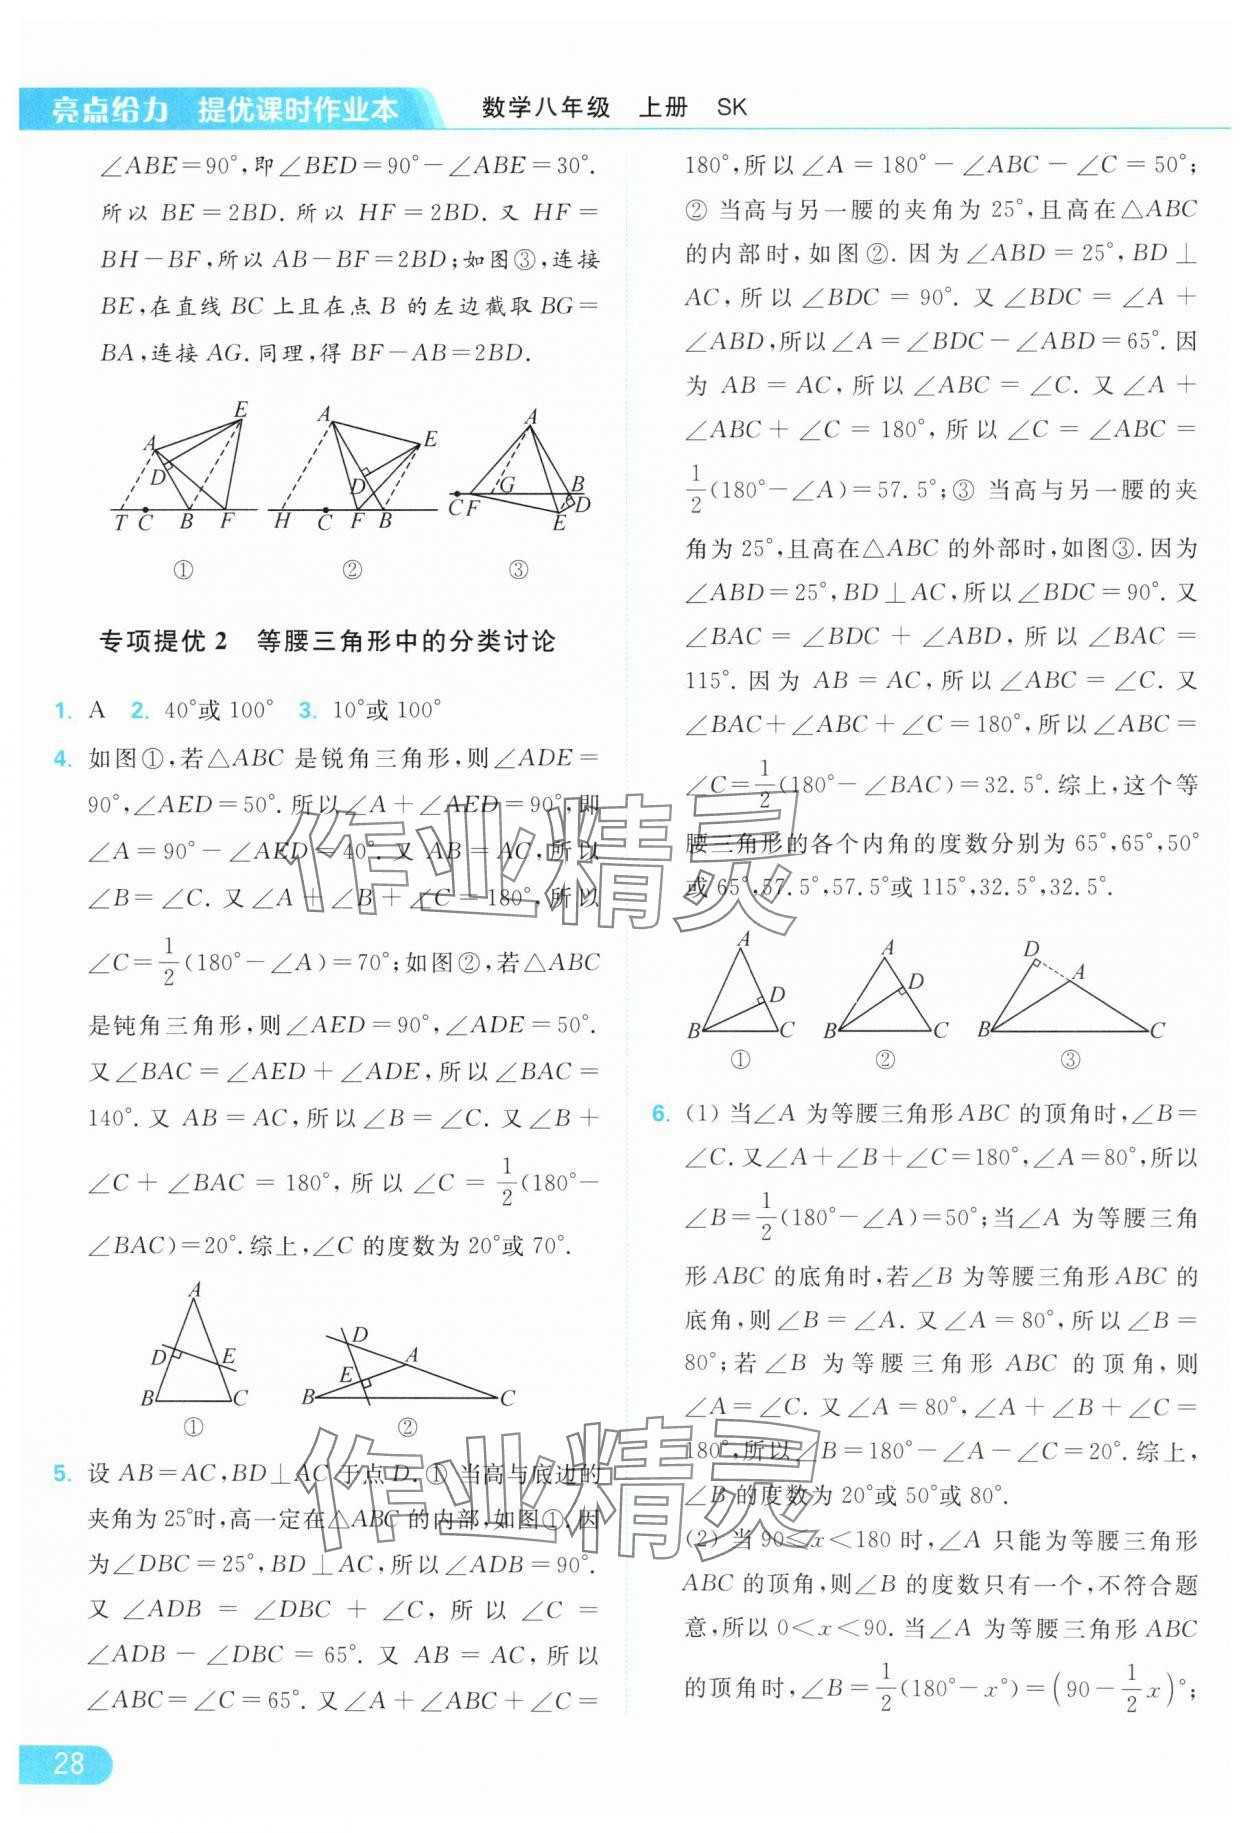 亮点给力 提优课时作业本 数学八年级 上册 SK
∠ABE=90°,即∠BED=90°-∠ABE=30°.
所以 BE=2BD.所以 HF=2BD.又 HF=
BH-BF,所以 AB-BF=2BD;如图③,连接
BE,在直线 BC 上且在点 B 的左边截取 BG=
BA,连接 AG.同理,得 BF-AB=2BD.
E A D T C B F ①
A E D H C F B ②
A G B C F D E ③
专项提优 2 等腰三角形中的分类讨论
1. A 2. 40°或 100° 3. 10°或 100°
4. 如图①,若△ABC 是锐角三角形,则∠ADE=
90°,∠AED=50°.所以∠A+∠AED=90°,即
∠A=90°-∠AED=40°.又 AB=AC,所以
∠B=∠C.又∠A+∠B+∠C=180°,所以
∠C=1/2(180°-∠A)=70°;如图②,若△ABC
是钝角三角形,则∠AED=90°,∠ADE=50°.
又∠BAC=∠AED+∠ADE,所以∠BAC=
140°.又 AB=AC,所以∠B=∠C.又∠B+
∠C+∠BAC=180°,所以∠C=1/2(180°-
∠BAC)=20°.综上,∠C 的度数为 20°或 70°.
A D E B C ①
D A E B C ②
5. 设 AB=AC,BD⊥AC 于点 D.① 当高与底边的
夹角为 25°时,高一定在△ABC 的内部,如图①.因
为∠DBC=25°,BD⊥AC,所以∠ADB=90°.
又∠ADB=∠DBC+∠C,所以∠C=
∠ADB-∠DBC=65°.又 AB=AC,所以
∠ABC=∠C=65°.又∠A+∠ABC+∠C=
180°,所以∠A=180°-∠ABC-∠C=50°;
② 当高与另一腰的夹角为 25°,且高在△ABC
的内部时,如图②.因为∠ABD=25°,BD⊥
AC,所以∠BDC=90°.又∠BDC=∠A+
∠ABD,所以∠A=∠BDC-∠ABD=65°.因
为 AB=AC,所以∠ABC=∠C.又∠A+
∠ABC+∠C=180°,所以∠C=∠ABC=
1/2(180°-∠A)=57.5°;③ 当高与另一腰的夹
角为 25°,且高在△ABC 的外部时,如图③.因为
∠ABD=25°,BD⊥AC,所以∠BDC=90°.又
∠BAC=∠BDC+∠ABD,所以∠BAC=
115°.因为 AB=AC,所以∠ABC=∠C.又
∠BAC+∠ABC+∠C=180°,所以∠ABC=
∠C=1/2(180°-∠BAC)=32.5°.综上,这个等
腰三角形的各个内角的度数分别为 65°,65°,50°
或 65°,57.5°,57.5°或 115°,32.5°,32.5°.
A D B C ①
A D B C ②
D A B C ③
6. (1) 当∠A 为等腰三角形 ABC 的顶角时,∠B=
∠C.又∠A+∠B+∠C=180°,∠A=80°,所以
∠B=1/2(180°-∠A)=50°;当∠A 为等腰三角
形 ABC 的底角时,若∠B 为等腰三角形 ABC 的
底角,则∠B=∠A.又∠A=80°,所以∠B=
80°;若∠B 为等腰三角形 ABC 的顶角,则
∠A=∠C.又∠A=80°,∠A+∠B+∠C=
180°,所以∠B=180°-∠A-∠C=20°.综上,
∠B 的度数为 20°或 50°或 80°.
(2) 当 90≤x<180 时,∠A 只能为等腰三角形
ABC 的顶角,则∠B 的度数只有一个,不符合题
意,所以 0<x<90.当∠A 为等腰三角形 ABC
的顶角时,∠B=1/2(180°-x°)=(90-1/2x)°;
28
作业精灵
作业精灵